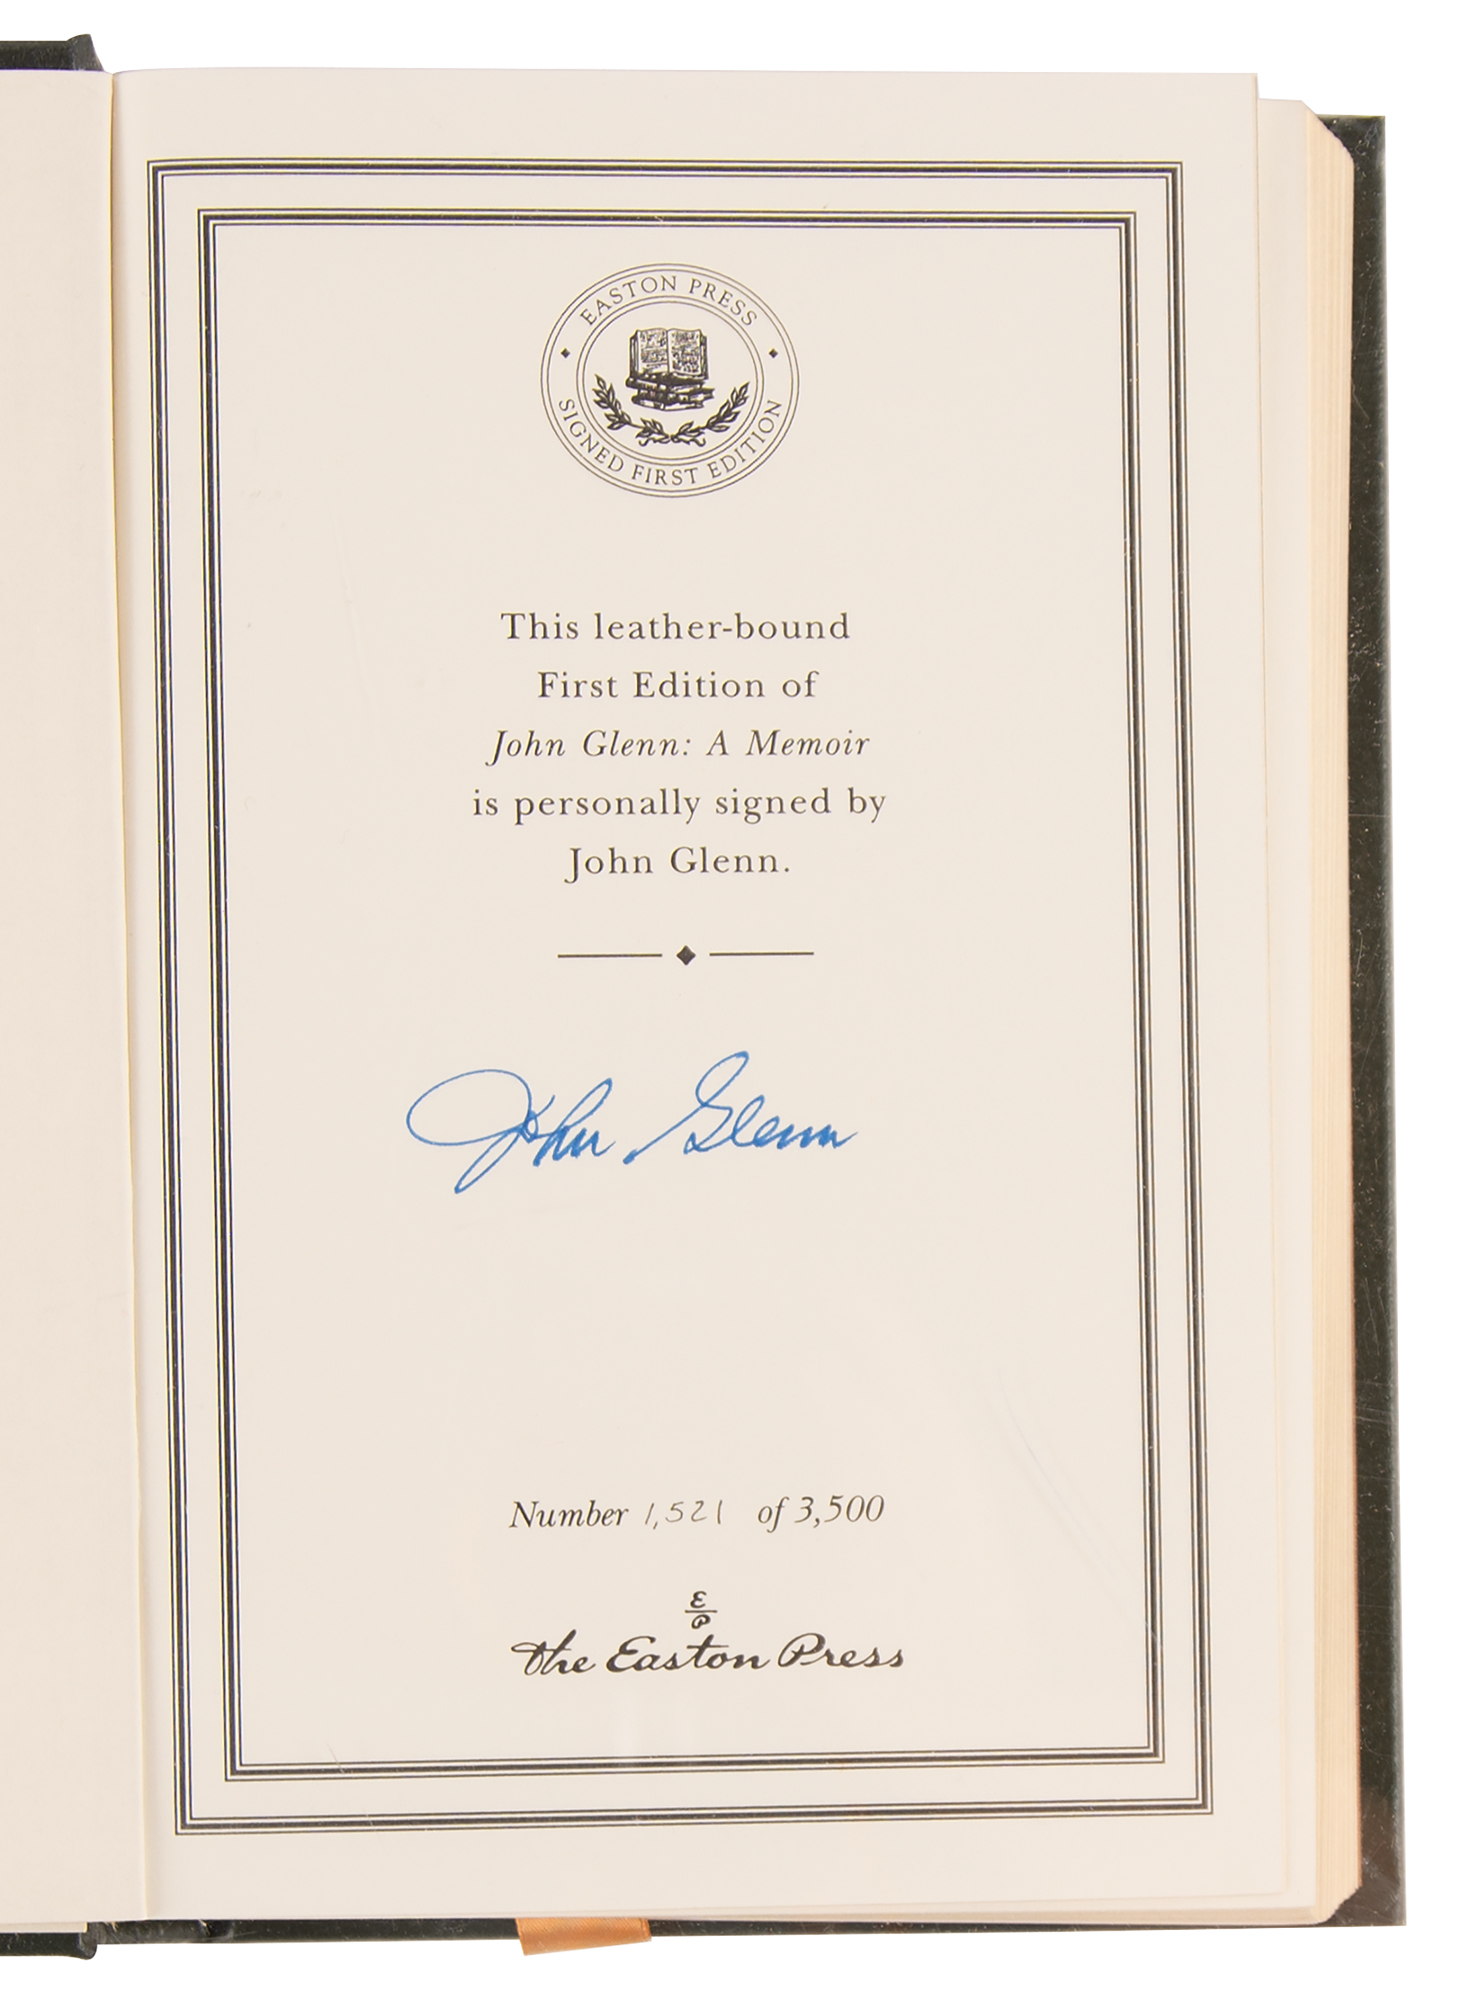 EASTON PRESS
SIGNED FIRST EDITION
This leather-bound
First Edition of
John Glenn: A Memoir
is personally signed by
John Glenn.
John Glenn
Number 1,521 of 3,500
E
P
The Easton Press